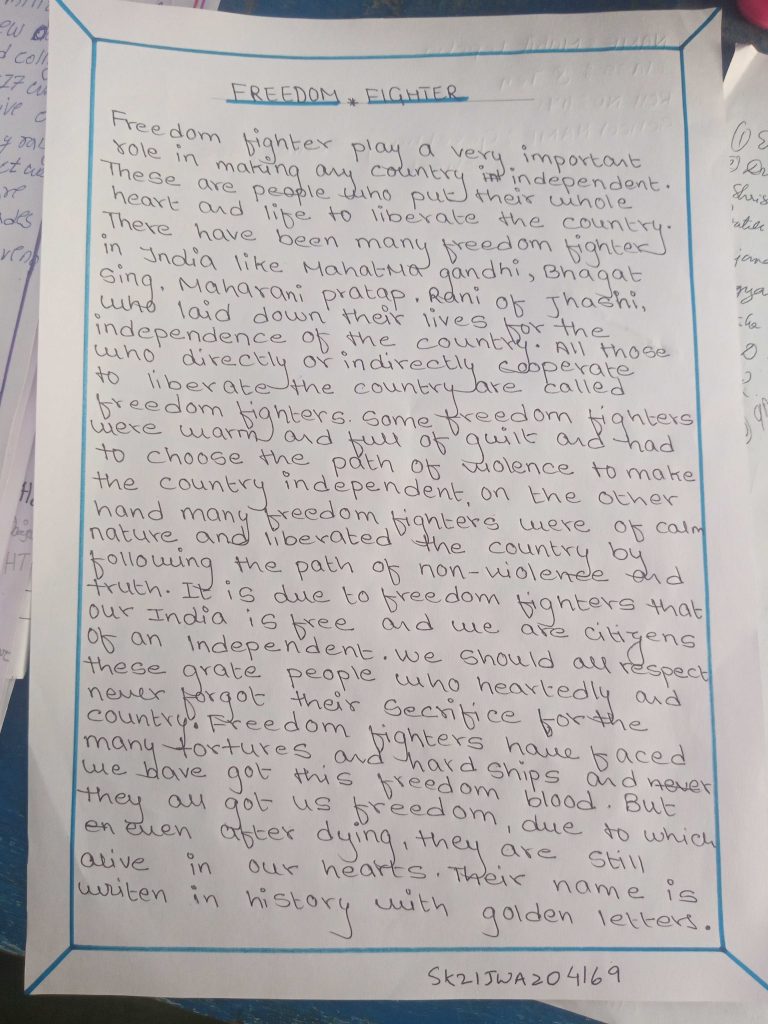 FREEDOM * FIGHTER
Freedom fighter play a very important
role in making any country independent.
These are people who put their whole
heart and life to liberate the country.
There have been many freedom fighter
in India like Mahatma gandhi, Bhagat
sing, Maharani pratap, Rani of Jhashi,
who laid down their lives for the
independence of the country. All those
who directly or indirectly cooperate
to liberate the country are called
freedom fighters. Some freedom fighters
were warm and full of guilt and had
to choose the path of violence to make
the country independent, on the other
hand many freedom fighters were of calm
nature and liberated the country by
following the path of non-violence and
truth. It is due to freedom fighters that
our India is free and we are citizens
of an Independent. We should all respect
these grate people who heartedly and
never forgot their secrifice for the
country. Freedom fighters have faced
many tortures and hard ships and never
we bave got this freedom blood. But
they all got us freedom, due to which
en even after dying, they are still
alive in our hearts. Their name is
writen in history with golden letters.
SK21JWA204169